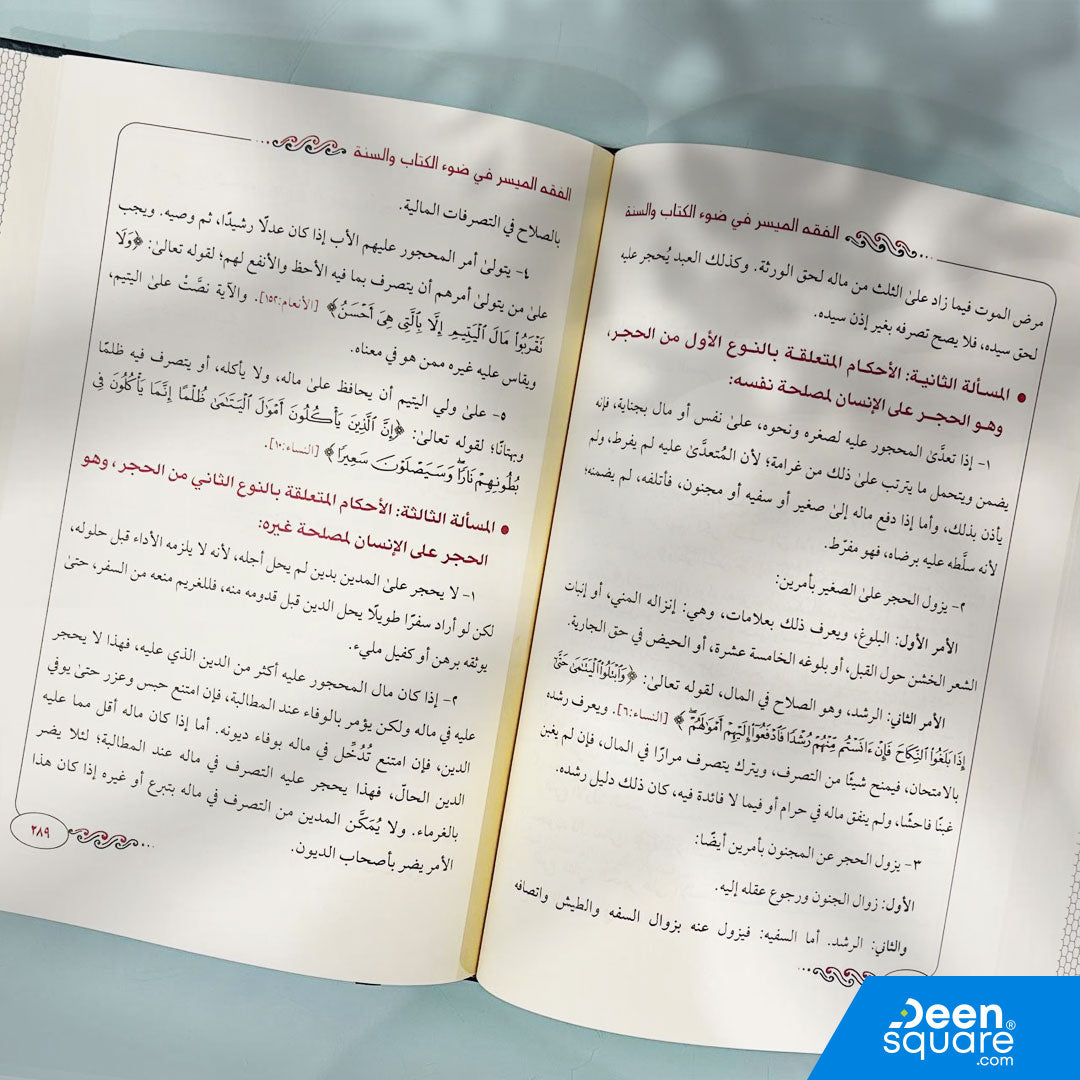 الفقه الميسر في ضوء الكتاب والسنة
مرض الموت فيما زاد علىٰ الثلث من ماله لحق الورثة. وكذلك العبد يُحجر عليه
لحق سيده، فلا يصح تصرفه بغير إذن سيده.
• المسألة الثانية: الأحكام المتعلقة بالنوع الأول من الحجر،
وهو الحجر على الإنسان لمصلحة نفسه:
١- إذا تعدَّىٰ المحجور عليه لصغره ونحوه، علىٰ نفس أو مال بجناية، فإنه
يضمن ويتحمل ما يترتب علىٰ ذلك من غرامة؛ لأن المُتعدَّىٰ عليه لم يفرط، ولم
يأذن بذلك، وأما إذا دفع ماله إلىٰ صغير أو سفيه أو مجنون، فأتلفه، لم يضمنه؛
لأنه سلَّطه عليه برضاه، فهو مفرّط.
٢- يزول الحجر علىٰ الصغير بأمرين:
الأمر الأول: البلوغ، ويعرف ذلك بعلامات، وهي: إنزاله المني، أو إنبات
الشعر الخشن حول القبل، أو بلوغه الخامسة عشرة، أو الحيض في حق الجارية.
الأمر الثاني: الرشد، وهو الصلاح في المال، لقوله تعالىٰ: ﴿وَٱبْتَلُوا۟ ٱلْيَتَٰمَىٰ حَتَّىٰٓ
إِذَا بَلَغُوا۟ ٱلنِّكَاحَ فَإِنْ ءَانَسْتُم مِّنْهُمْ رُشْدًا فَٱدْفَعُوٓا۟ إِلَيْهِمْ أَمْوَٰلَهُمْ ۖ﴾ [النساء:٦]. ويعرف رشده
بالامتحان، فيمنح شيئًا من التصرف، ويترك يتصرف مرارًا في المال، فإن لم يغبن
غبنًا فاحشًا، ولم ينفق ماله في حرام أو فيما لا فائدة فيه، كان ذلك دليل رشده.
٣- يزول الحجر عن المجنون بأمرين أيضًا:
الأول: زوال الجنون ورجوع عقله إليه.
والثاني: الرشد. أما السفيه: فيزول عنه بزوال السفه والطيش واتصافه
الفقه الميسر في ضوء الكتاب والسنة
بالصلاح في التصرفات المالية.
٤- يتولىٰ أمر المحجور عليهم الأب إذا كان عدلًا رشيدًا، ثم وصيه. ويجب
علىٰ من يتولىٰ أمرهم أن يتصرف بما فيه الأحظ والأنفع لهم؛ لقوله تعالىٰ: ﴿وَلَا
تَقْرَبُوا۟ مَالَ ٱلْيَتِيمِ إِلَّا بِٱلَّتِى هِىَ أَحْسَنُ﴾ [الأنعام:١٥٢]. والآية نصَّتْ علىٰ اليتيم،
ويقاس عليه غيره ممن هو في معناه.
٥- علىٰ ولي اليتيم أن يحافظ علىٰ ماله، ولا يأكله، أو يتصرف فيه ظلمًا
وبهتانًا؛ لقوله تعالىٰ: ﴿إِنَّ ٱلَّذِينَ يَأْكُلُونَ أَمْوَٰلَ ٱلْيَتَٰمَىٰ ظُلْمًا إِنَّمَا يَأْكُلُونَ فِى
بُطُونِهِمْ نَارًا ۖ وَسَيَصْلَوْنَ سَعِيرًا﴾ [النساء:١٠].
• المسألة الثالثة: الأحكام المتعلقة بالنوع الثاني من الحجر، وهو
الحجر على الإنسان لمصلحة غيره:
١- لا يحجر علىٰ المدين بدين لم يحل أجله، لأنه لا يلزمه الأداء قبل حلوله،
لكن لو أراد سفرًا طويلًا يحل الدين قبل قدومه منه، فللغريم منعه من السفر، حتىٰ
يوثقه برهن أو كفيل مليء.
٢- إذا كان مال المحجور عليه أكثر من الدين الذي عليه، فهذا لا يحجر
عليه في ماله ولكن يؤمر بالوفاء عند المطالبة، فإن امتنع حبس وعزر حتىٰ يوفي
الدين، فإن امتنع تُدُخِّل في ماله بوفاء ديونه. أما إذا كان ماله أقل مما عليه
من الدين الحالّ، فهذا يحجر عليه التصرف في ماله عند المطالبة؛ لئلا يضر
بالغرماء. ولا يُمَكَّن المدين من التصرف في ماله بتبرع أو غيره إذا كان هذا
الأمر يضر بأصحاب الديون.
٢٨٩
Deen®
square
.com